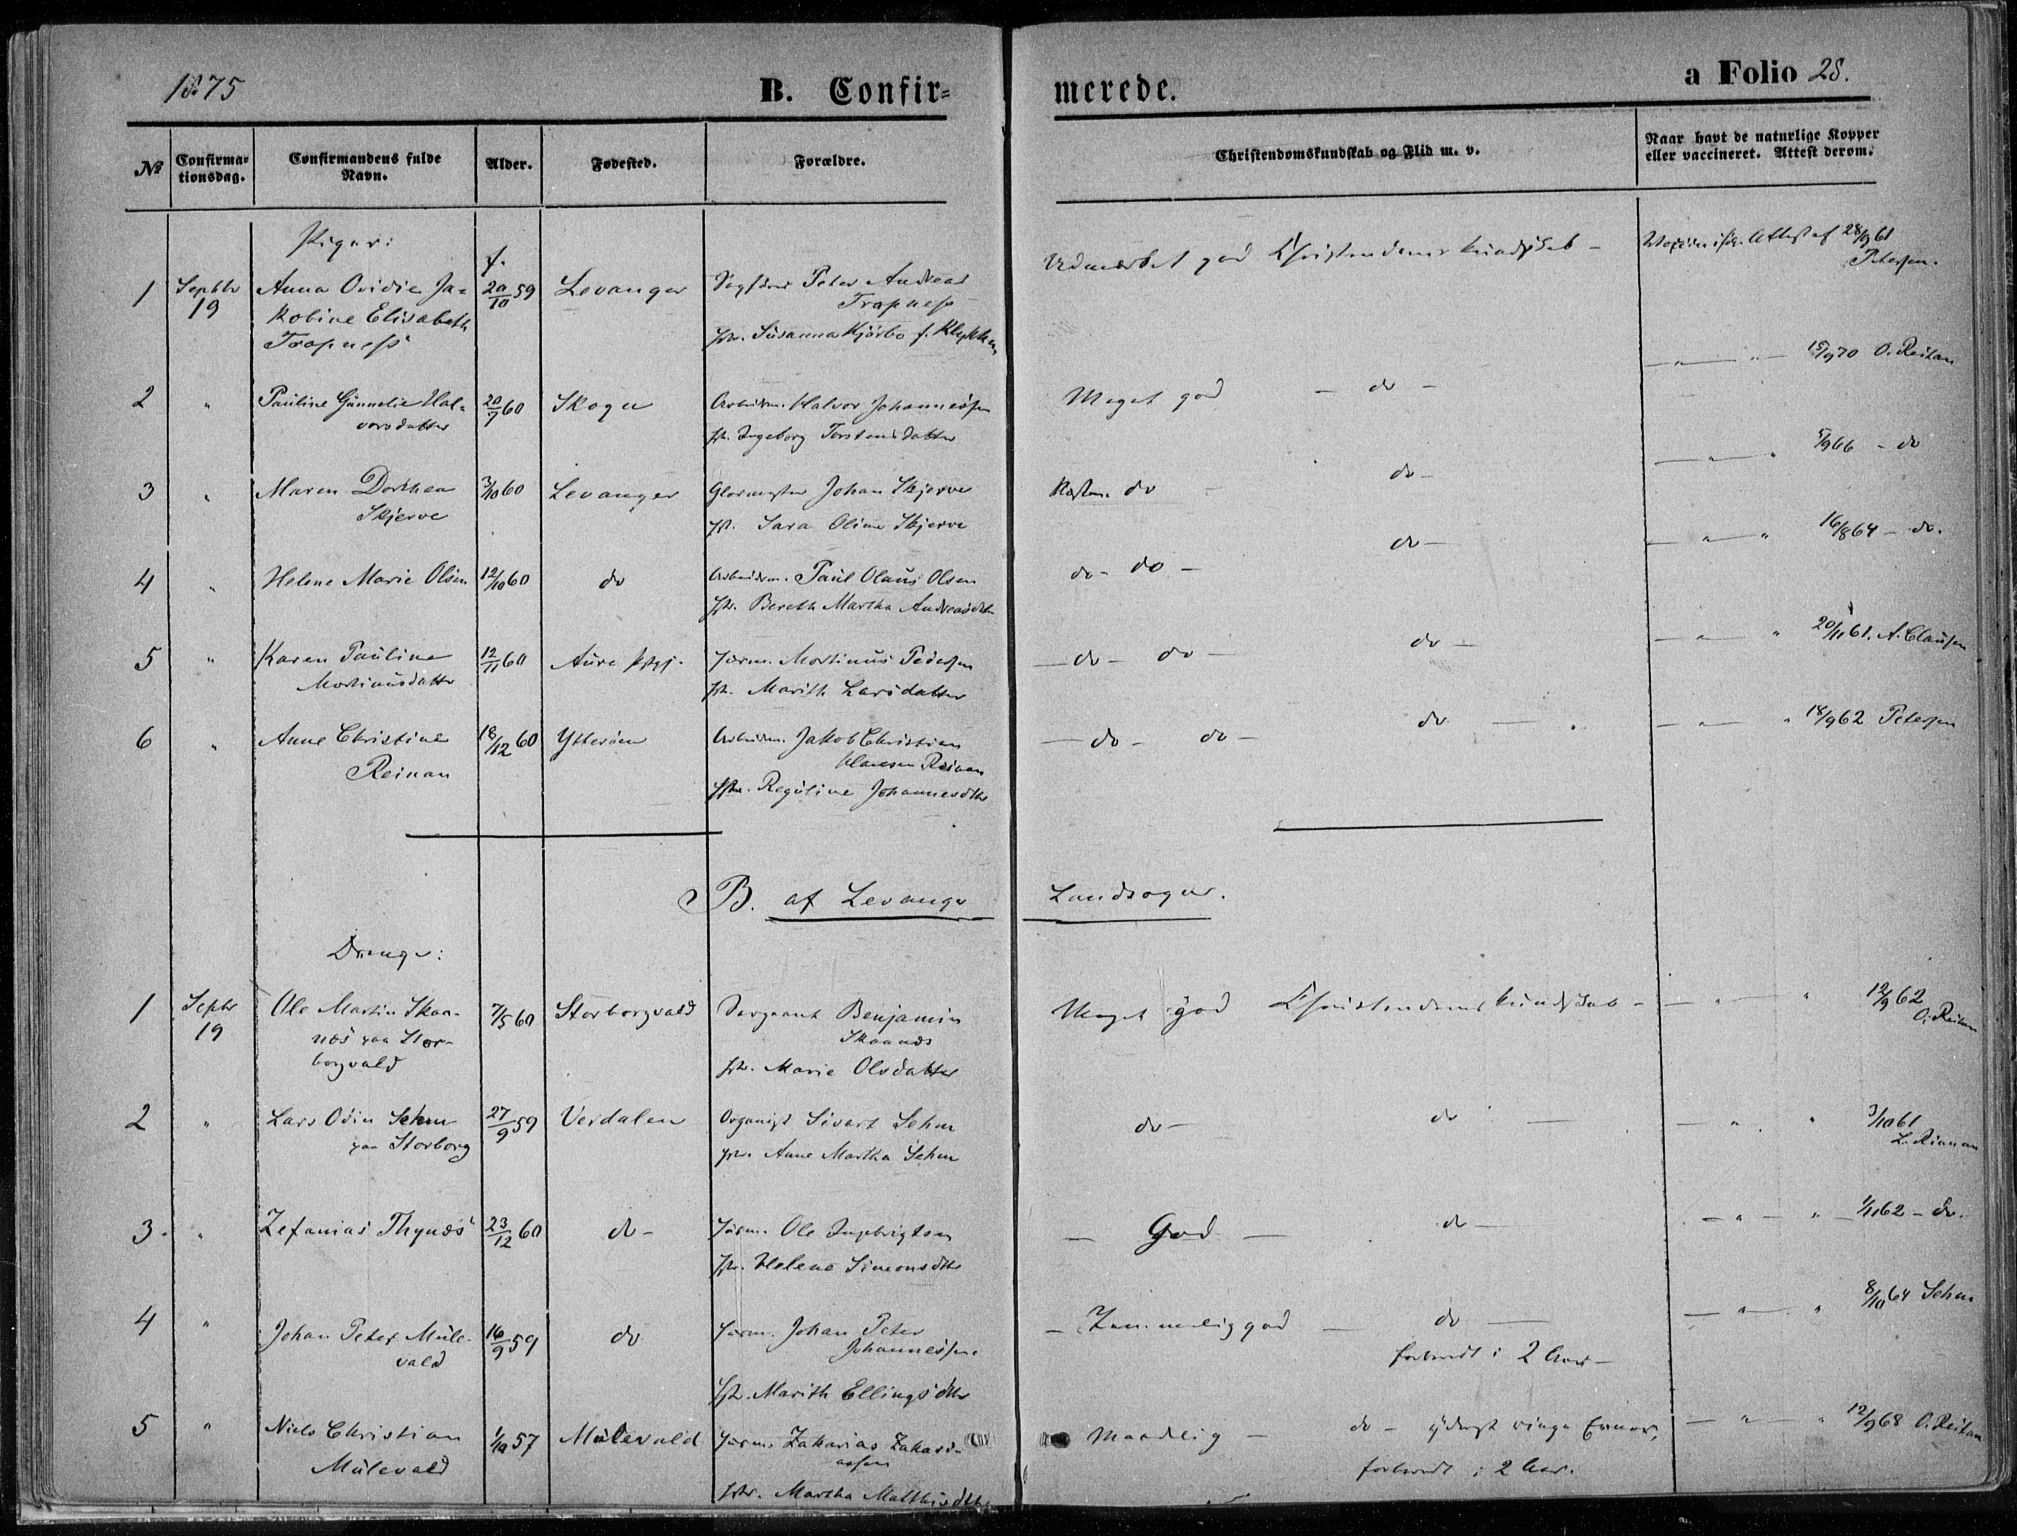 1875
B. Confir=
merede.
a Folio 28.
No
Confirma=
tionsdag.
Confirmandens fulde
Navn.
Alder.
Fødested.
Forældre.
Christendomskundskab og Flid m. v.
Naar havt de naturlige Kopper
eller vaccineret. Attest derom.
Piger:
f.
1 Septbr 19 Anna Ovidie Ja=
kobine Elisabeth
Trapness
20/10 59 Levanger
Peter Andreas
Trapness
Susanna Kjørbo f.
Udmærket god Christendomskundskab –
Attest af 28/9 61
Petersen.
2 " Pauline Gunnelie Hal=
vorsdatter
20/7 60 Skogn
Arbeidsm. Halvor Johannessen
H. Ingeborg Torstensdatter
Meget god – do –
– " – 15/9 70 O. Reitan
3 " Maren Dorthea
Skjerve
3/10 60 Levanger
Glarmester Johan Skjerve
H. Sara Oline Skjerve
Næsten do – do –
– " – " 5/9 66 – do
4 " Helene Marie Olsen 12/10 60 do
Arbeidsm. Paul Olaus Olsen
H. Bereth Martha Andreasdtr
do – do – do –
– " – " 16/8 64 – do.
5 " Karen Pauline
Martinusdatter
12/11 60 Aure
Martinus Pedersen
H. Marith Larsdatter
– do – do – do –
– " – " 20/11 61. A. Clausen
6 " Anne Christine
Reinan
18/12 60 Ytterøen
Arbeidsm. Jakob Christian
Clausen Reinan
H. Reguline Johannesdtr
– do – do – do –
– " – " 18/9 62 Petersen
B. af Levanger
Landsogn.
Drenge:
1 Septbr 19 Ole Martin Skaa=
næs paa Stor-
borgvald
7/5 60 Storborgvald
Sergeant Benjamin
Skaanæs
H. Marie Olsdatter
Meget god Christendomskundskab –
– " – " 12/9 62
O. Reitan
2 " Lars Odin Sehm
paa Storborg
27/9 59 Verdalen
Organist Sivert Sehm
H. Anne Martha Sehm
do – do –
– " – " 3/10 61
L. Rinnan
3. " Zefanias Thynæs 23/12 60 do –
Ole Ingebrigtsen
H. Helene Simonsdtr
– God – do –
– " – " 1/11 62 – do.
4 " Johan Peter Mule-
vald
16/9 59 do
Johan Peter
Johannessen.
H. Marith Ellingsdtr
– Temmelig god – do –
forberedt i 2 Aar –
– " – " 8/10 64 Sehm
5 " Niels Christian
Mulevald
1/10 57 Mulevald
Zakarias Zakari-
assen
H. Martha Mathiasdtr
Maadelig – do – yderst ringe Evner,
forberedt i 2 Aar.
– " – " 12/9 68 O. Reitan